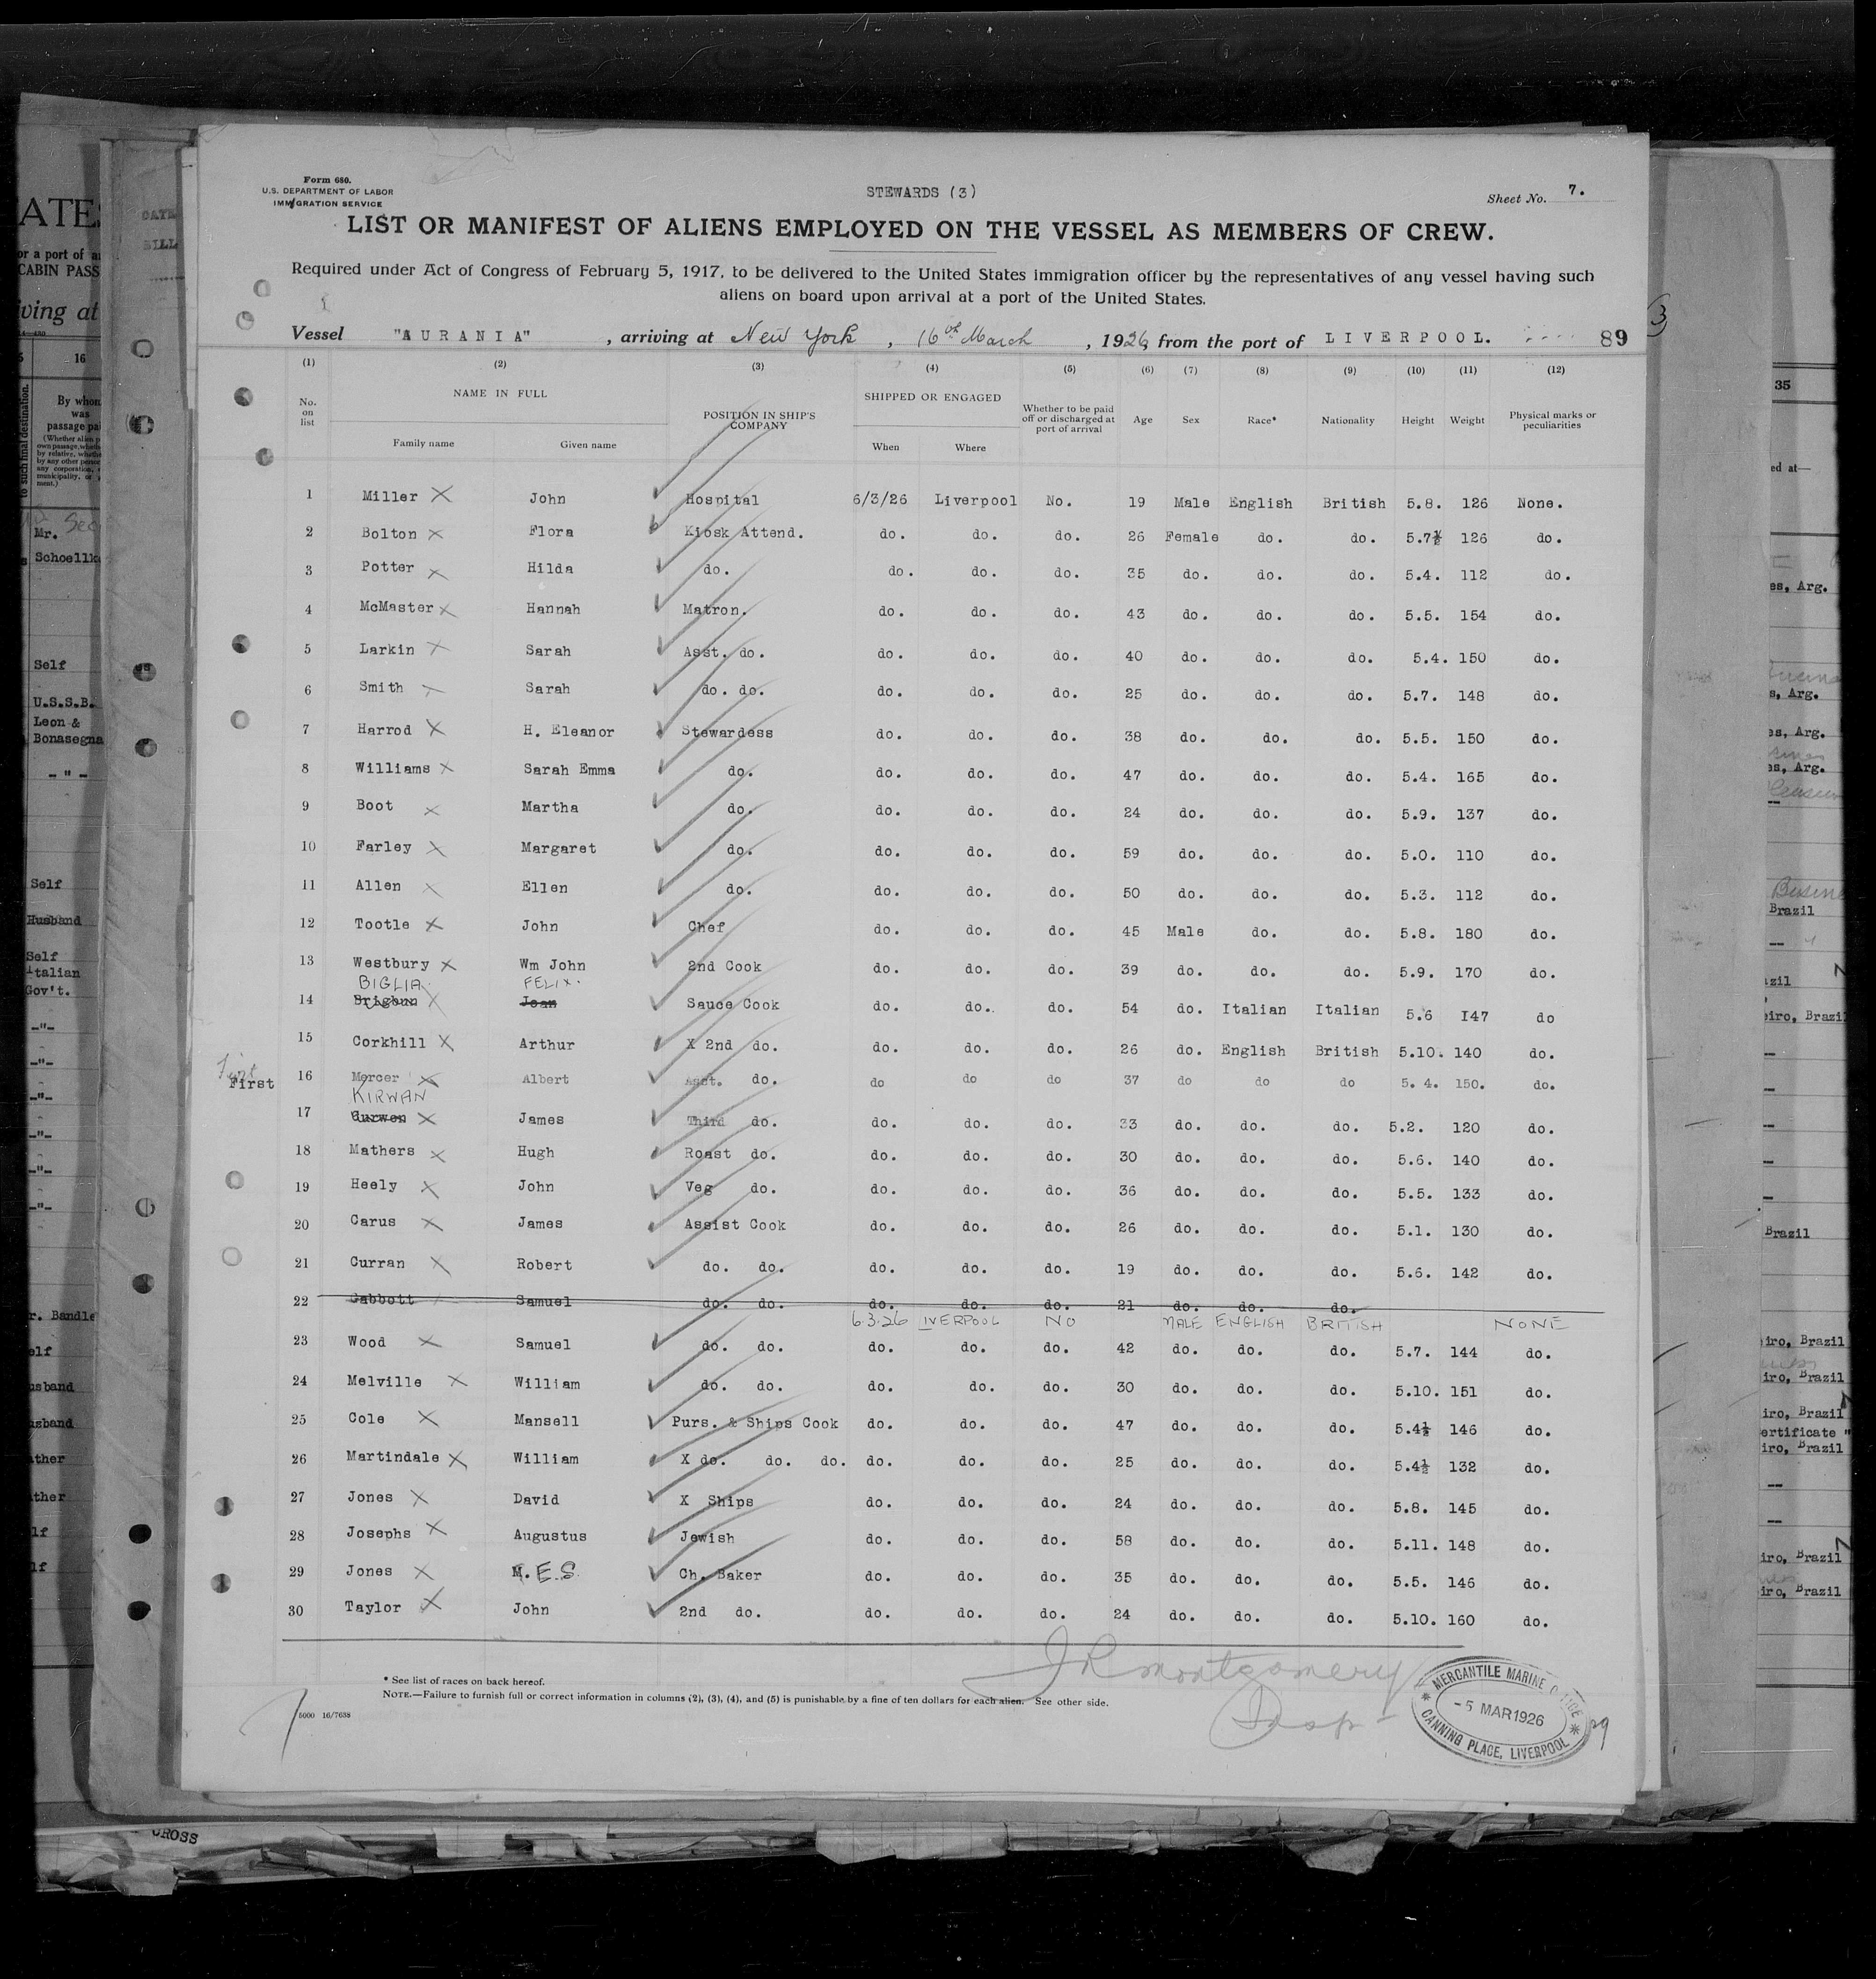 Form 680.
U.S. DEPARTMENT OF LABOR
IMMIGRATION SERVICE
STEWARDS (3)
Sheet No. 7.
LIST OR MANIFEST OF ALIENS EMPLOYED ON THE VESSEL AS MEMBERS OF CREW.
Required under Act of Congress of February 5, 1917, to be delivered to the United States immigration officer by the representatives of any vessel having such
aliens on board upon arrival at a port of the United States.
Vessel "AURANIA", arriving at New York, 16th March, 1926, from the port of LIVERPOOL. 89
(1) (2) (3) (4) (5) (6) (7) (8) (9) (10) (11) (12)
No. on list NAME IN FULL POSITION IN SHIP'S COMPANY SHIPPED OR ENGAGED Whether to be paid off or discharged at port of arrival Age Sex Race* Nationality Height Weight Physical marks or peculiarities
Family name Given name When Where
1 Miller John Hospital 6/3/26 Liverpool No. 19 Male English British 5.8. 126 None.
2 Bolton Flora Kiosk Attend. do. do. do. 26 Female do. do. 5.7½ 126 do.
3 Potter Hilda do. do. do. do. 35 do. do. do. 5.4. 112 do.
4 McMaster Hannah Matron. do. do. do. 43 do. do. do. 5.5. 154 do.
5 Larkin Sarah Asst. do. do. do. do. 40 do. do. do. 5.4. 150 do.
6 Smith Sarah do. do. do. do. do. 25 do. do. do. 5.7. 148 do.
7 Harrod H. Eleanor Stewardess do. do. do. 38 do. do. do. 5.5. 150 do.
8 Williams Sarah Emma do. do. do. do. 47 do. do. do. 5.4. 165 do.
9 Boot Martha do. do. do. do. 24 do. do. do. 5.9. 137 do.
10 Farley Margaret do. do. do. do. 59 do. do. do. 5.0. 110 do.
11 Allen Ellen do. do. do. do. 50 do. do. do. 5.3. 112 do.
12 Tootle John Chef do. do. do. 45 Male do. do. 5.8. 180 do.
13 Westbury Wm John 2nd Cook do. do. do. 39 do. do. do. 5.9. 170 do.
BIGLIA FELIX.
14 Jean Sauce Cook do. do. do. 54 do. Italian Italian 5.6 147 do
15 Corkhill Arthur X 2nd do. do. do. do. 26 do. English British 5.10. 140 do.
First First 16 Mercer Albert Asst. do. do do do 37 do do do 5. 4. 150. do.
KIRWAN
17 Curwen James Third do. do. do. do. 33 do. do. do. 5.2. 120 do.
18 Mathers Hugh Roast do. do. do. do. 30 do. do. do. 5.6. 140 do.
19 Heely John Veg do. do. do. do. 36 do. do. do. 5.5. 133 do.
20 Carus James Assist Cook do. do. do. 26 do. do. do. 5.1. 130 do.
21 Curran Robert do. do. do. do. do. 19 do. do. do. 5.6. 142 do.
22 Gabbott Samuel do. do. do. do. do. 21 do. do. do.
6.3.26 LIVERPOOL NO MALE ENGLISH BRITISH NONE
23 Wood Samuel do. do. do. do. do. 42 do. do. do. 5.7. 144 do.
24 Melville William do. do. do. do. do. 30 do. do. do. 5.10. 151 do.
25 Cole Mansell Purs. & Ships Cook do. do. do. 47 do. do. do. 5.4½ 146 do.
26 Martindale William X do. do. do. do. do. do. 25 do. do. do. 5.4½ 132 do.
27 Jones David X Ships do. do. do. 24 do. do. do. 5.8. 145 do.
28 Josephs Augustus Jewish do. do. do. 58 do. do. do. 5.11. 148 do.
29 Jones M. E.S. Ch. Baker do. do. do. 35 do. do. do. 5.5. 146 do.
30 Taylor John 2nd do. do. do. do. 24 do. do. do. 5.10. 160 do.
* See list of races on back hereof.
NOTE.—Failure to furnish full or correct information in columns (2), (3), (4), and (5) is punishable by a fine of ten dollars for each alien. See other side.
5000 16/7638
J R Montgomery
Insp
MERCANTILE MARINE OFFICE
-5 MAR 1926
CANNING PLACE, LIVERPOOL
29
ATES
or a port of
CABIN PASS
iving at
16
By whom was passage
Mr.
Schoellk
Self
U.S.S.B.
Leon &
Bonasegna
Self
Husband
Self
Italian
Gov't.
35
ed at—
es, Arg.
s, Arg.
es, Arg.
es, Arg.
Brazil
azil
eiro, Brazil
Brazil
iro, Brazil
iro, Brazil
iro, Brazil
ertificate
iro, Brazil
iro, Brazil
iro, Brazil
CROSS